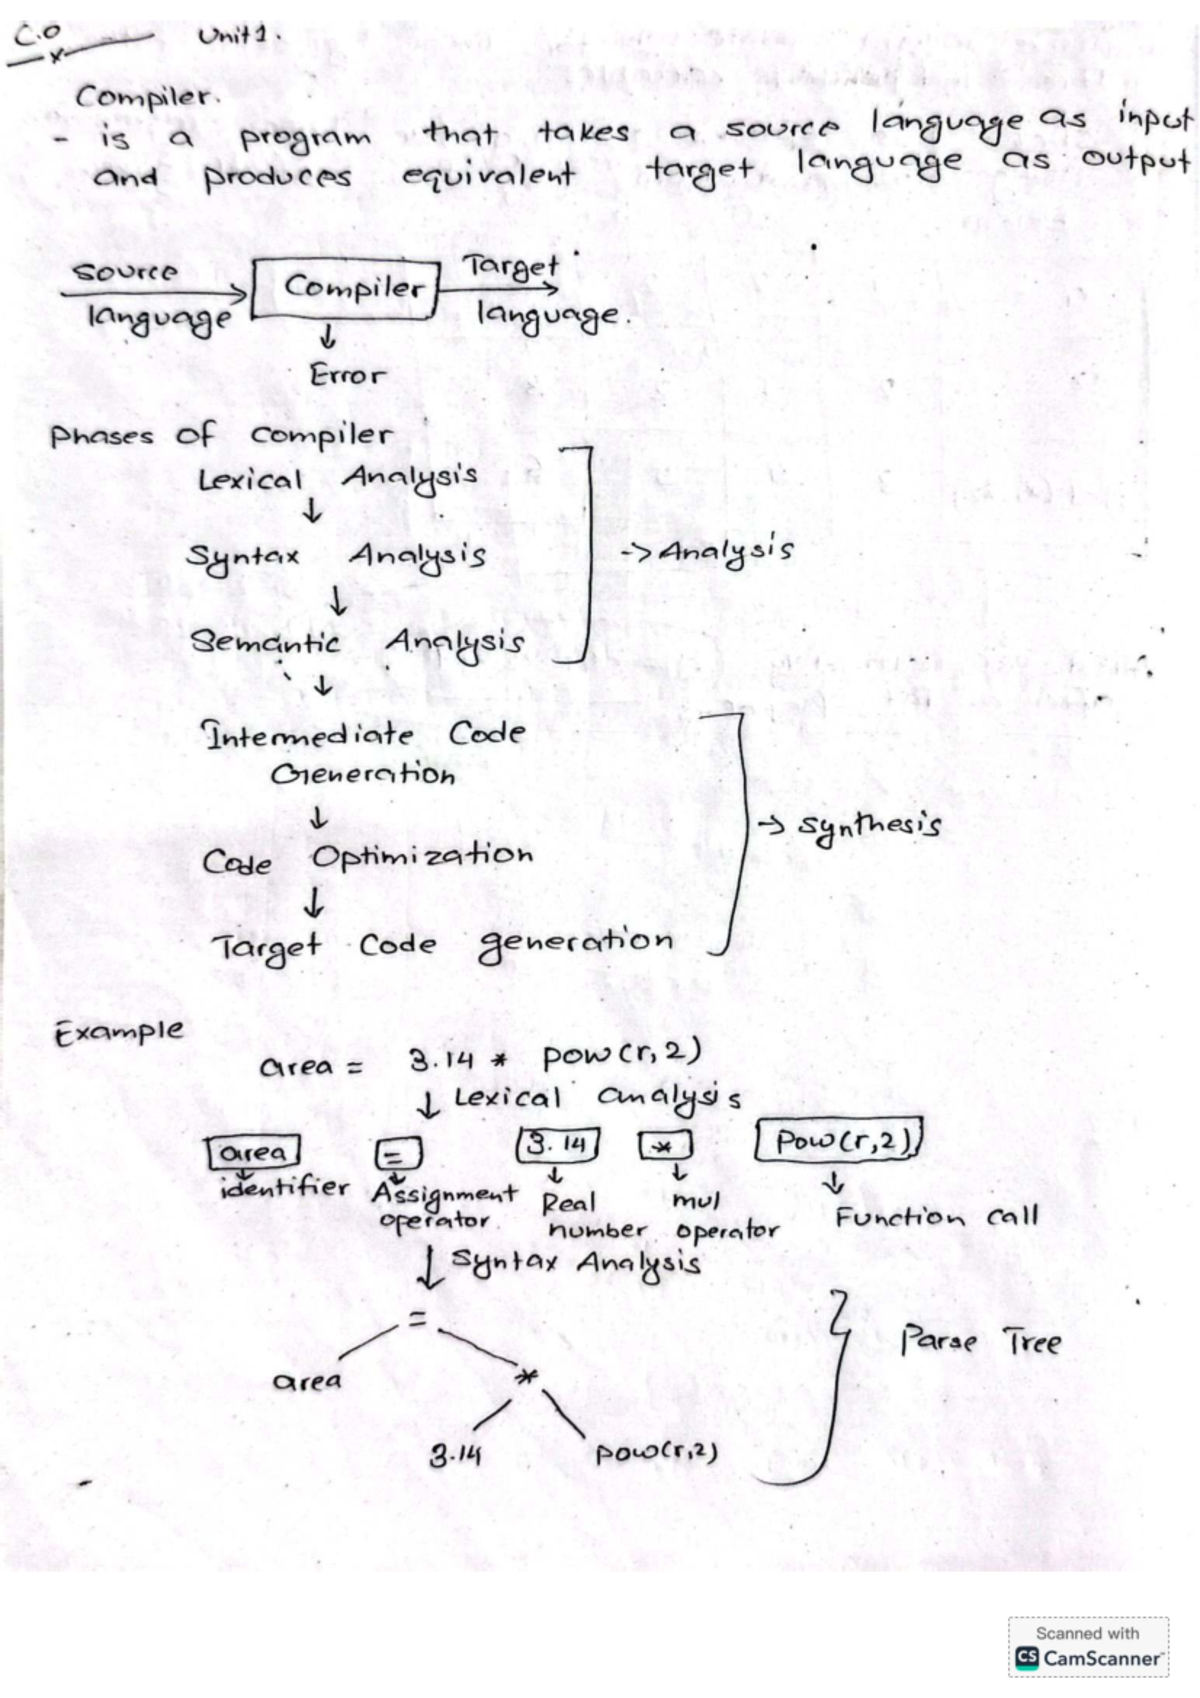 C.O Unit 1.
Compiler.
- is a program that takes a source language as input
and produces equivalent target language as output
source language
Compiler
Target language.
Error
Phases of compiler
Lexical Analysis
Syntax Analysis
Semantic Analysis
-> Analysis
Intermediate Code
Generation
Code Optimization
Target Code generation
-> Synthesis
Example
area = 3.14 * pow(r,2)
Lexical analysis
area = 3.14 * Pow(r,2)
identifier Assignment operator. Real number mul operator Function call
Syntax Analysis
=
area *
3.14 pow(r,2)
Parse Tree
Scanned with
CS CamScanner